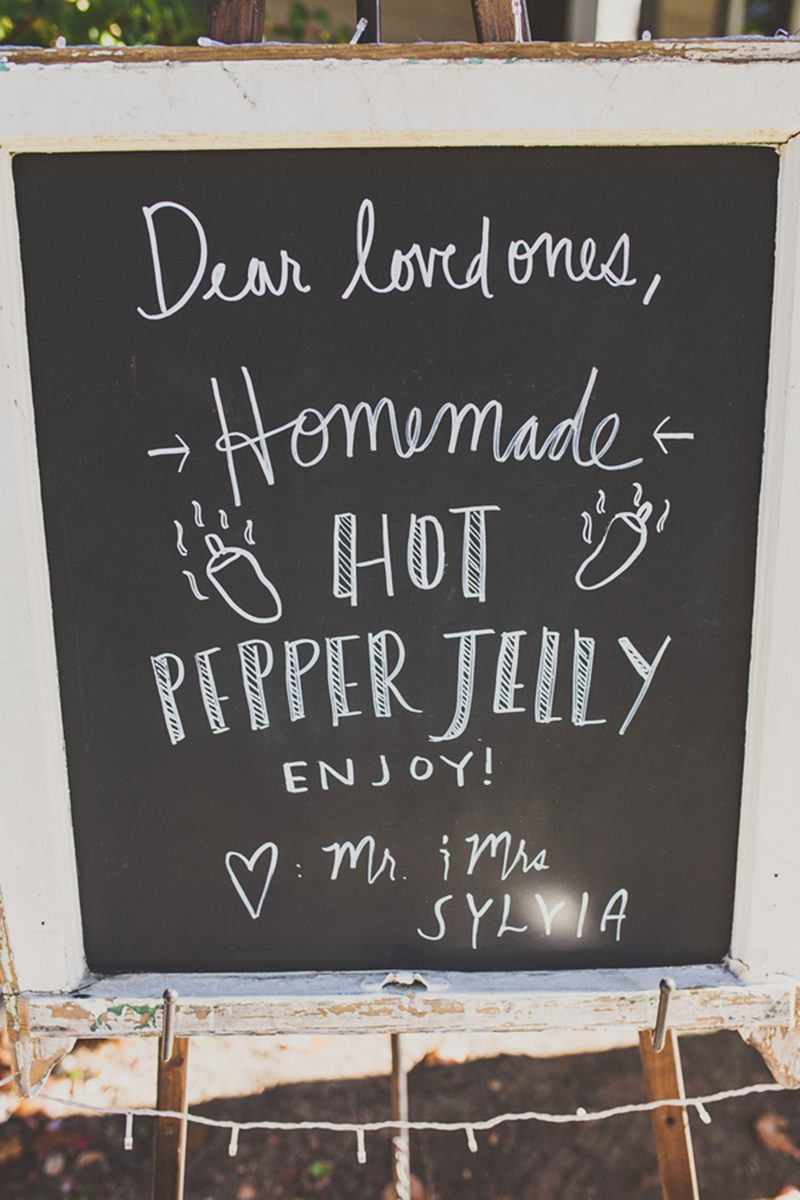 Dear loved ones,
→ Homemade ←
HOT
PEPPER JELLY
ENJOY!
♡: Mr. & Mrs
SYLVIA